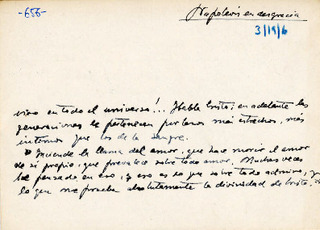 -656-
Napoleón en desgracia
3/19/6
vivo en todo el universo!... Habla Cristo; en adelante las
generaciones le pertenecen por lazos más estrechos, más
íntimos que los de la sangre.
Enciende la llama del amor, que hace morir el amor
de sí propio, que prevalece sobre todo amor. Muchas veces
he pensado en eso, y eso es lo que sobre todo admiro, y
lo que me prueba absolutamente la divinidad de Cristo.